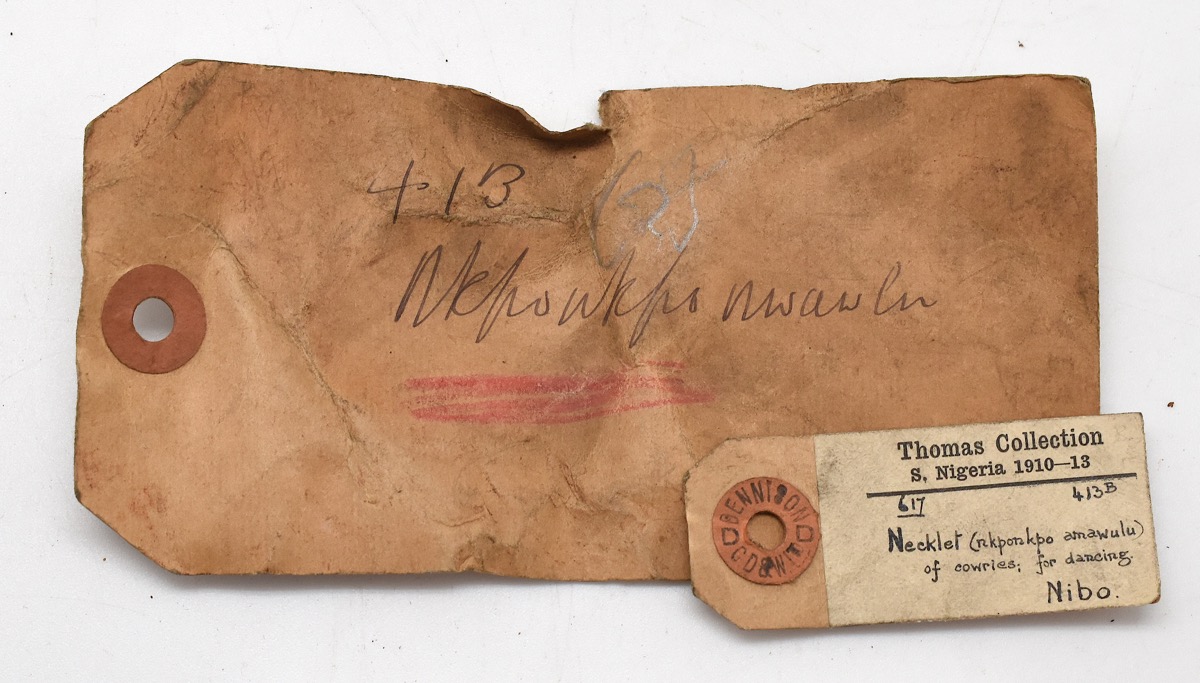 413
Nkponkpo nwawulu
DENNISON
Thomas Collection
S. Nigeria 1910—13
617 413B
Necklet (nkponkpo amawulu)
of cowries; for dancing.
Nibo.